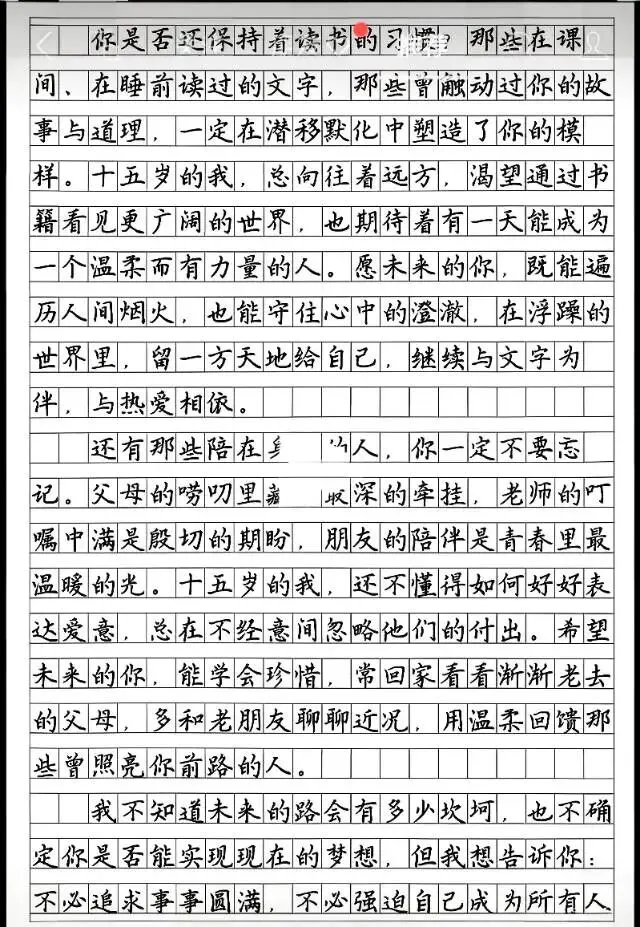 你是否还保持着读书的习惯？那些在课
间、在睡前读过的文字，那些曾触动过你的故
事与道理，一定在潜移默化中塑造了你的模
样。十五岁的我，总向往着远方，渴望通过书
籍看见更广阔的世界，也期待着有一天能成为
一个温柔而有力量的人。愿未来的你，既能遍
历人间烟火，也能守住心中的澄澈，在浮躁的
世界里，留一方天地给自己，继续与文字为
伴，与热爱相依。
还有那些陪在人，你一定不要忘
记。父母的唠叨里深的牵挂，老师的叮
嘱中满是殷切的期盼，朋友的陪伴是青春里最
温暖的光。十五岁的我，还不懂得如何好好表
达爱意，总在不经意间忽略他们的付出。希望
未来的你，能学会珍惜，常回家看看渐渐老去
的父母，多和老朋友聊聊近况，用温柔回馈那
些曾照亮你前路的人。
我不知道未来的路会有多少坎坷，也不确
定你是否能实现现在的梦想，但我想告诉你：
不必追求事事圆满，不必强迫自己成为所有人